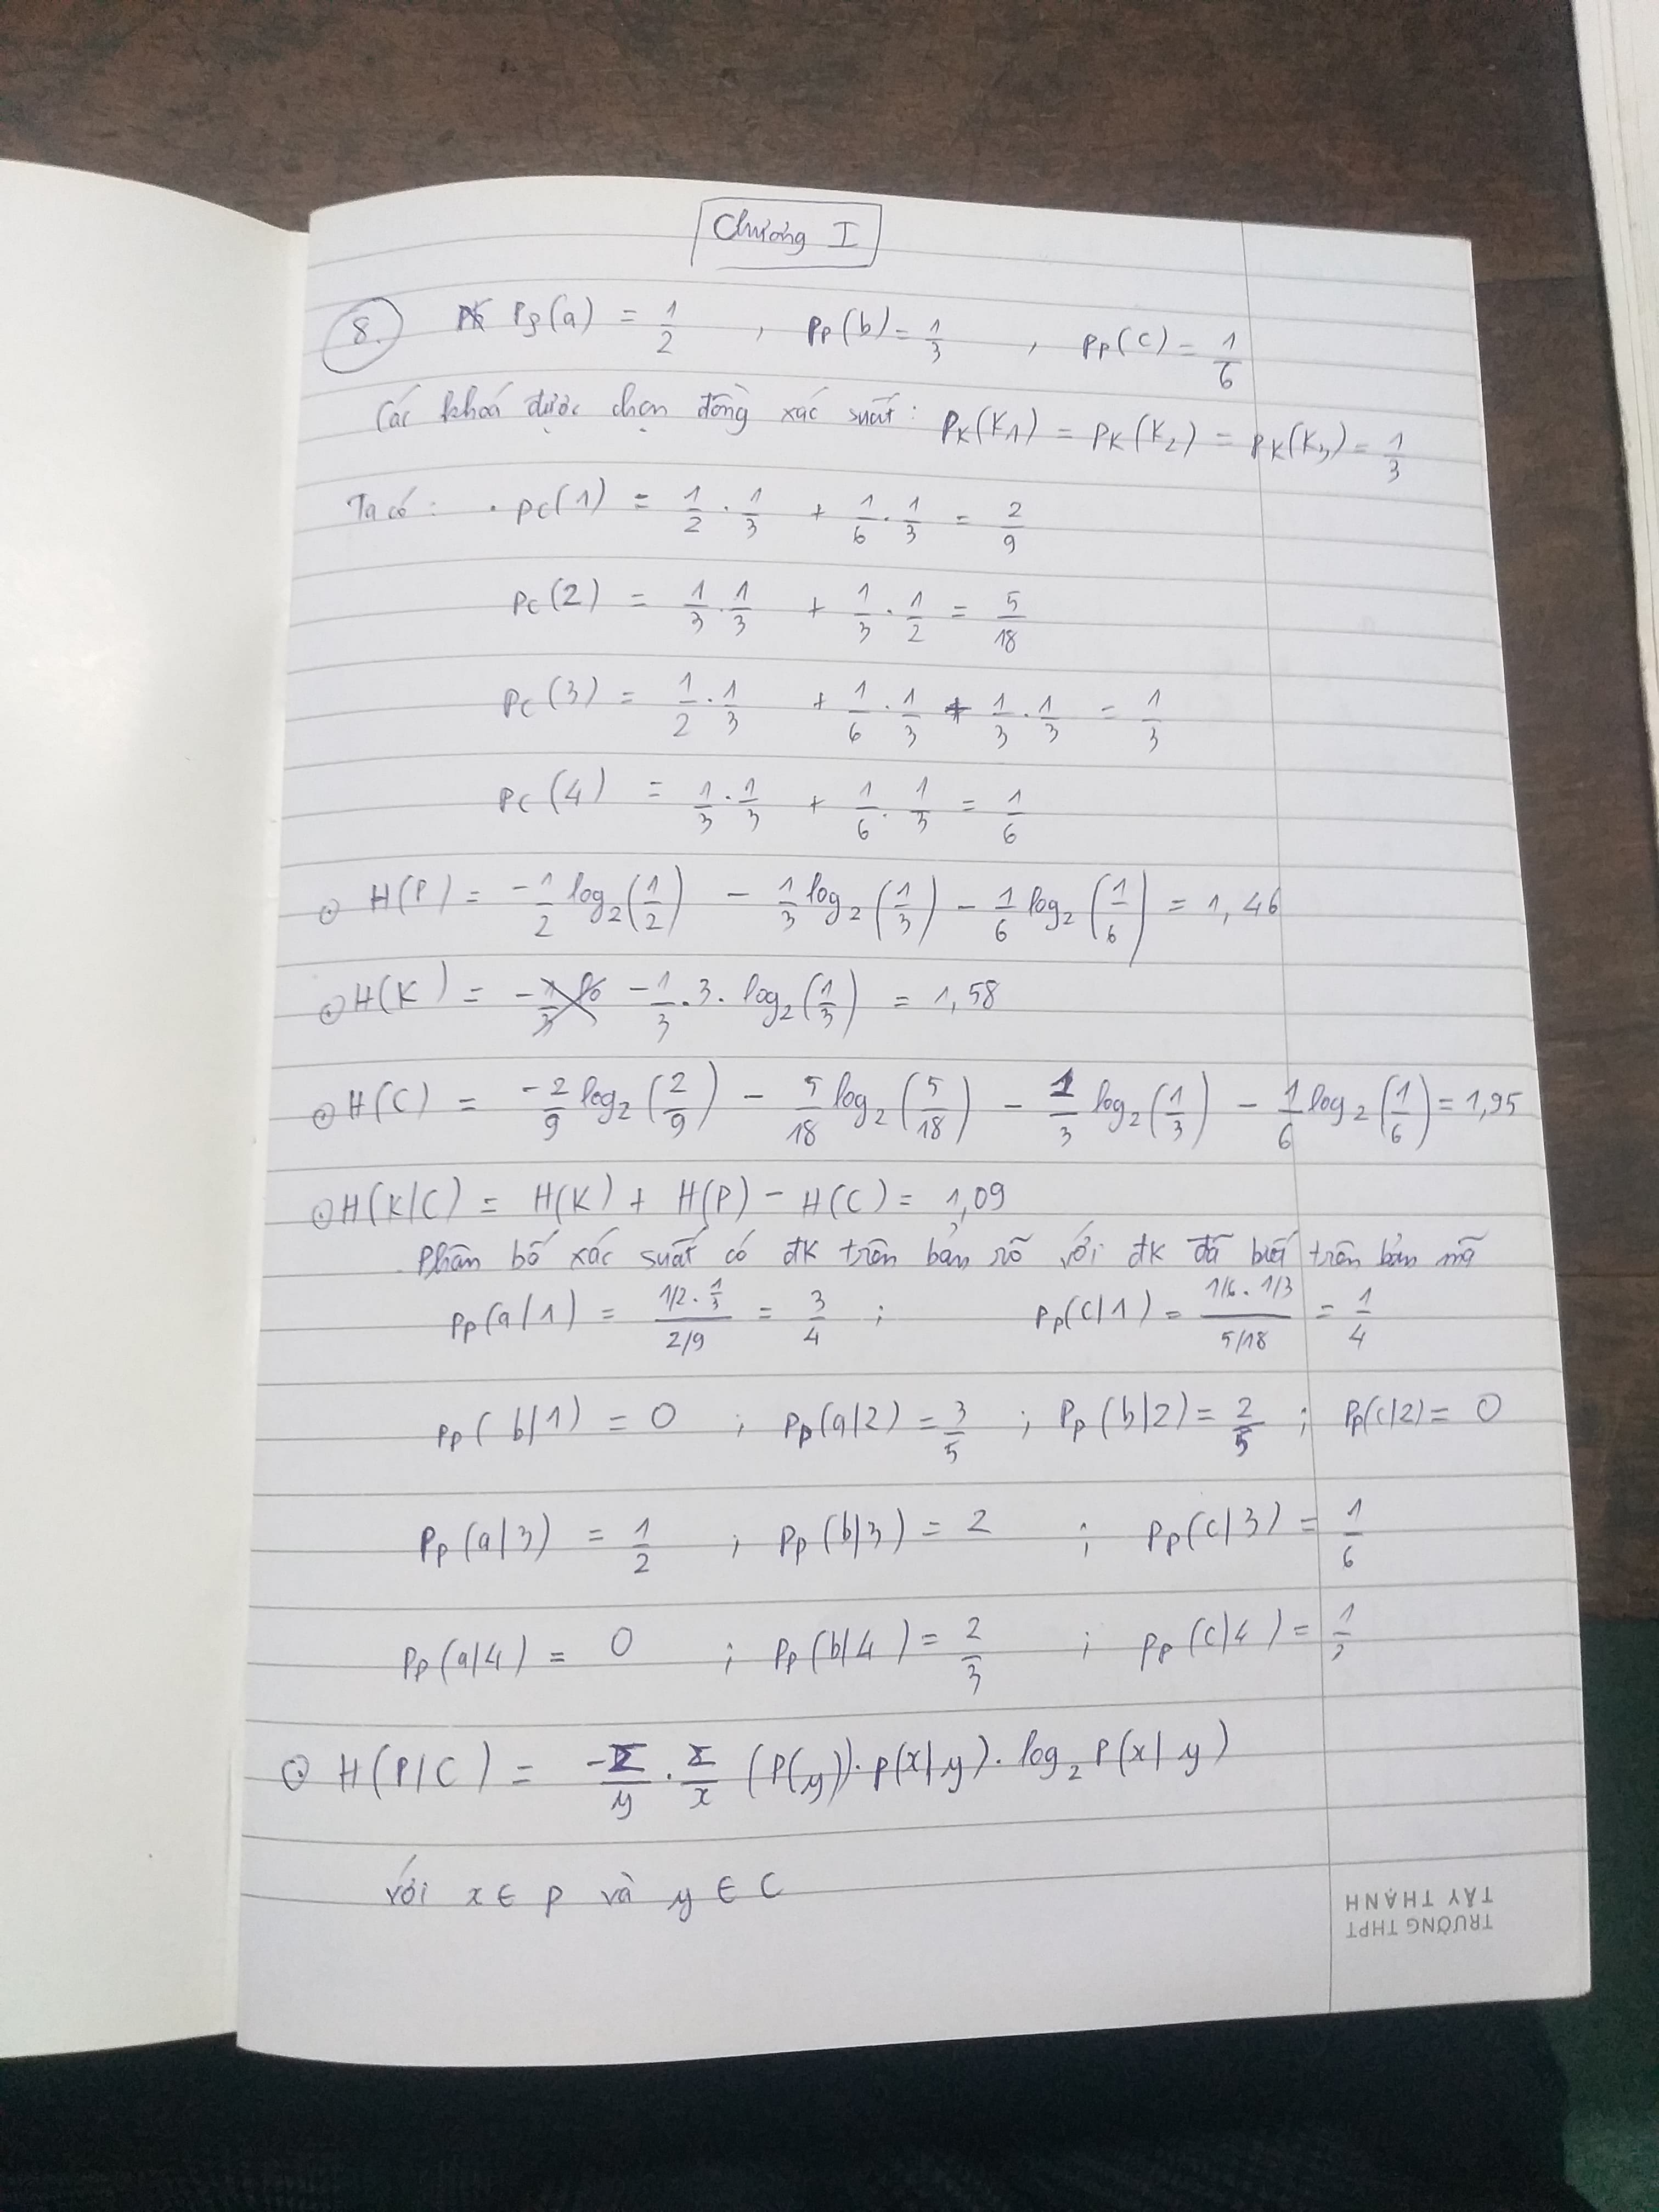 Chương I
8. Pρ(a) = 1/2 , Pp(b) = 1/3 , Pp(c) = 1/6
Các khoá được chọn đồng xác suất: PK(K1) = PK(K2) = PK(K3) = 1/3
Ta có: . Pc(1) = 1/2 . 1/3 + 1/6 . 1/3 = 2/9
Pc(2) = 1/3 . 1/3 + 1/3 . 1/2 = 5/18
Pc(3) = 1/2 . 1/3 + 1/6 . 1/3 + 1/3 . 1/3 = 1/3
Pc(4) = 1/3 . 1/3 + 1/6 . 1/3 = 1/6
⊙ H(P) = -1/2 log2(1/2) - 1/3 log2(1/3) - 1/6 log2(1/6) = 1,46
⊙ H(K) = -1/3 . 3 . log2(1/3) = 1,58
⊙ H(C) = -2/9 log2(2/9) - 5/18 log2(5/18) - 1/3 log2(1/3) - 1/6 log2(1/6) = 1,95
⊙ H(K|C) = H(K) + H(P) - H(C) = 1,09
. Phân bố xác suất có đk trên bản rõ với đk đã biết trên bản mã
Pp(a|1) = (1/2 . 1/3)/(2/9) = 3/4 ; Pp(c|1) = (1/6 . 1/3)/(5/18) = 1/4
Pp(b|1) = 0 ; Pp(a|2) = 3/5 ; Pp(b|2) = 2/5 ; Pp(c|2) = 0
Pp(a|3) = 1/2 ; Pp(b|3) = 2 ; Pp(c|3) = 1/6
Pp(a|4) = 0 ; Pp(b|4) = 2/3 ; Pp(c|4) = 1/3
⊙ H(P|C) = -Σ/y . Σ/x (P(y)) . p(x|y) . log2 P(x|y)
với x ∈ P và y ∈ C
TRƯỜNG THPT
TÂY THẠNH